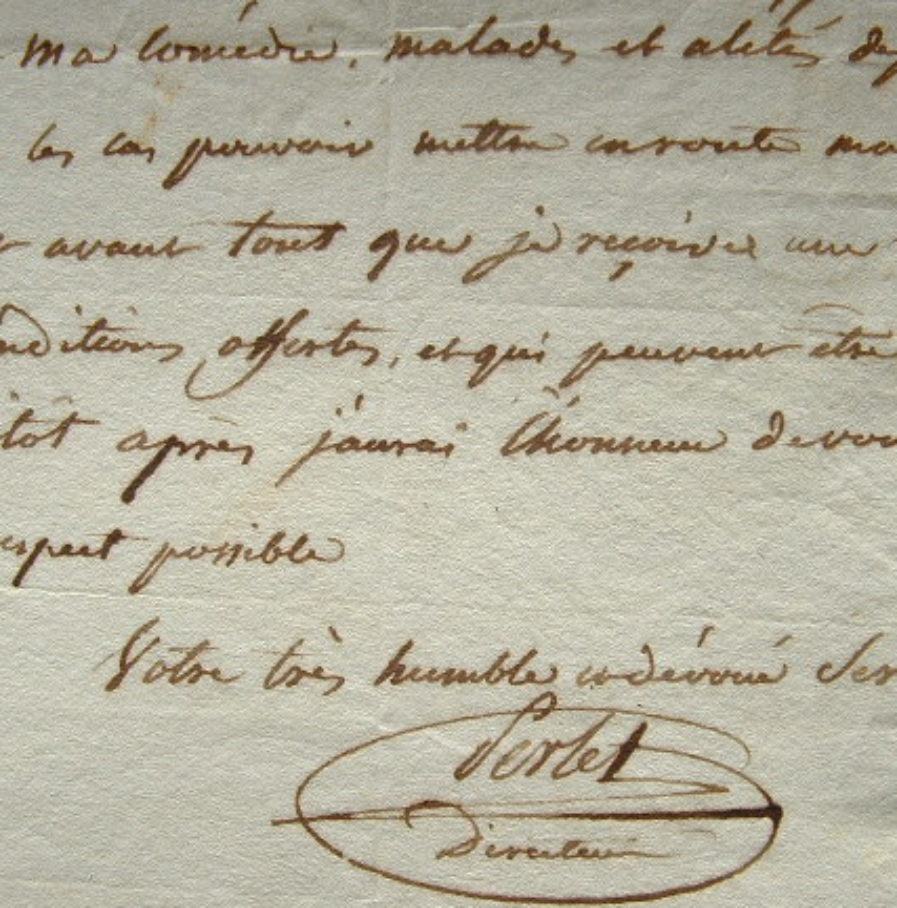 ma comédie, malades et alités dep
les cas pouvoir mettre en route ma
avant tout que je reçoive une
nditions offertes, et qui peuvent être
itôt après j'aurai l'honneur de vou
espect possible
Votre très humble et dévoué Ser
Perlet
Directeur